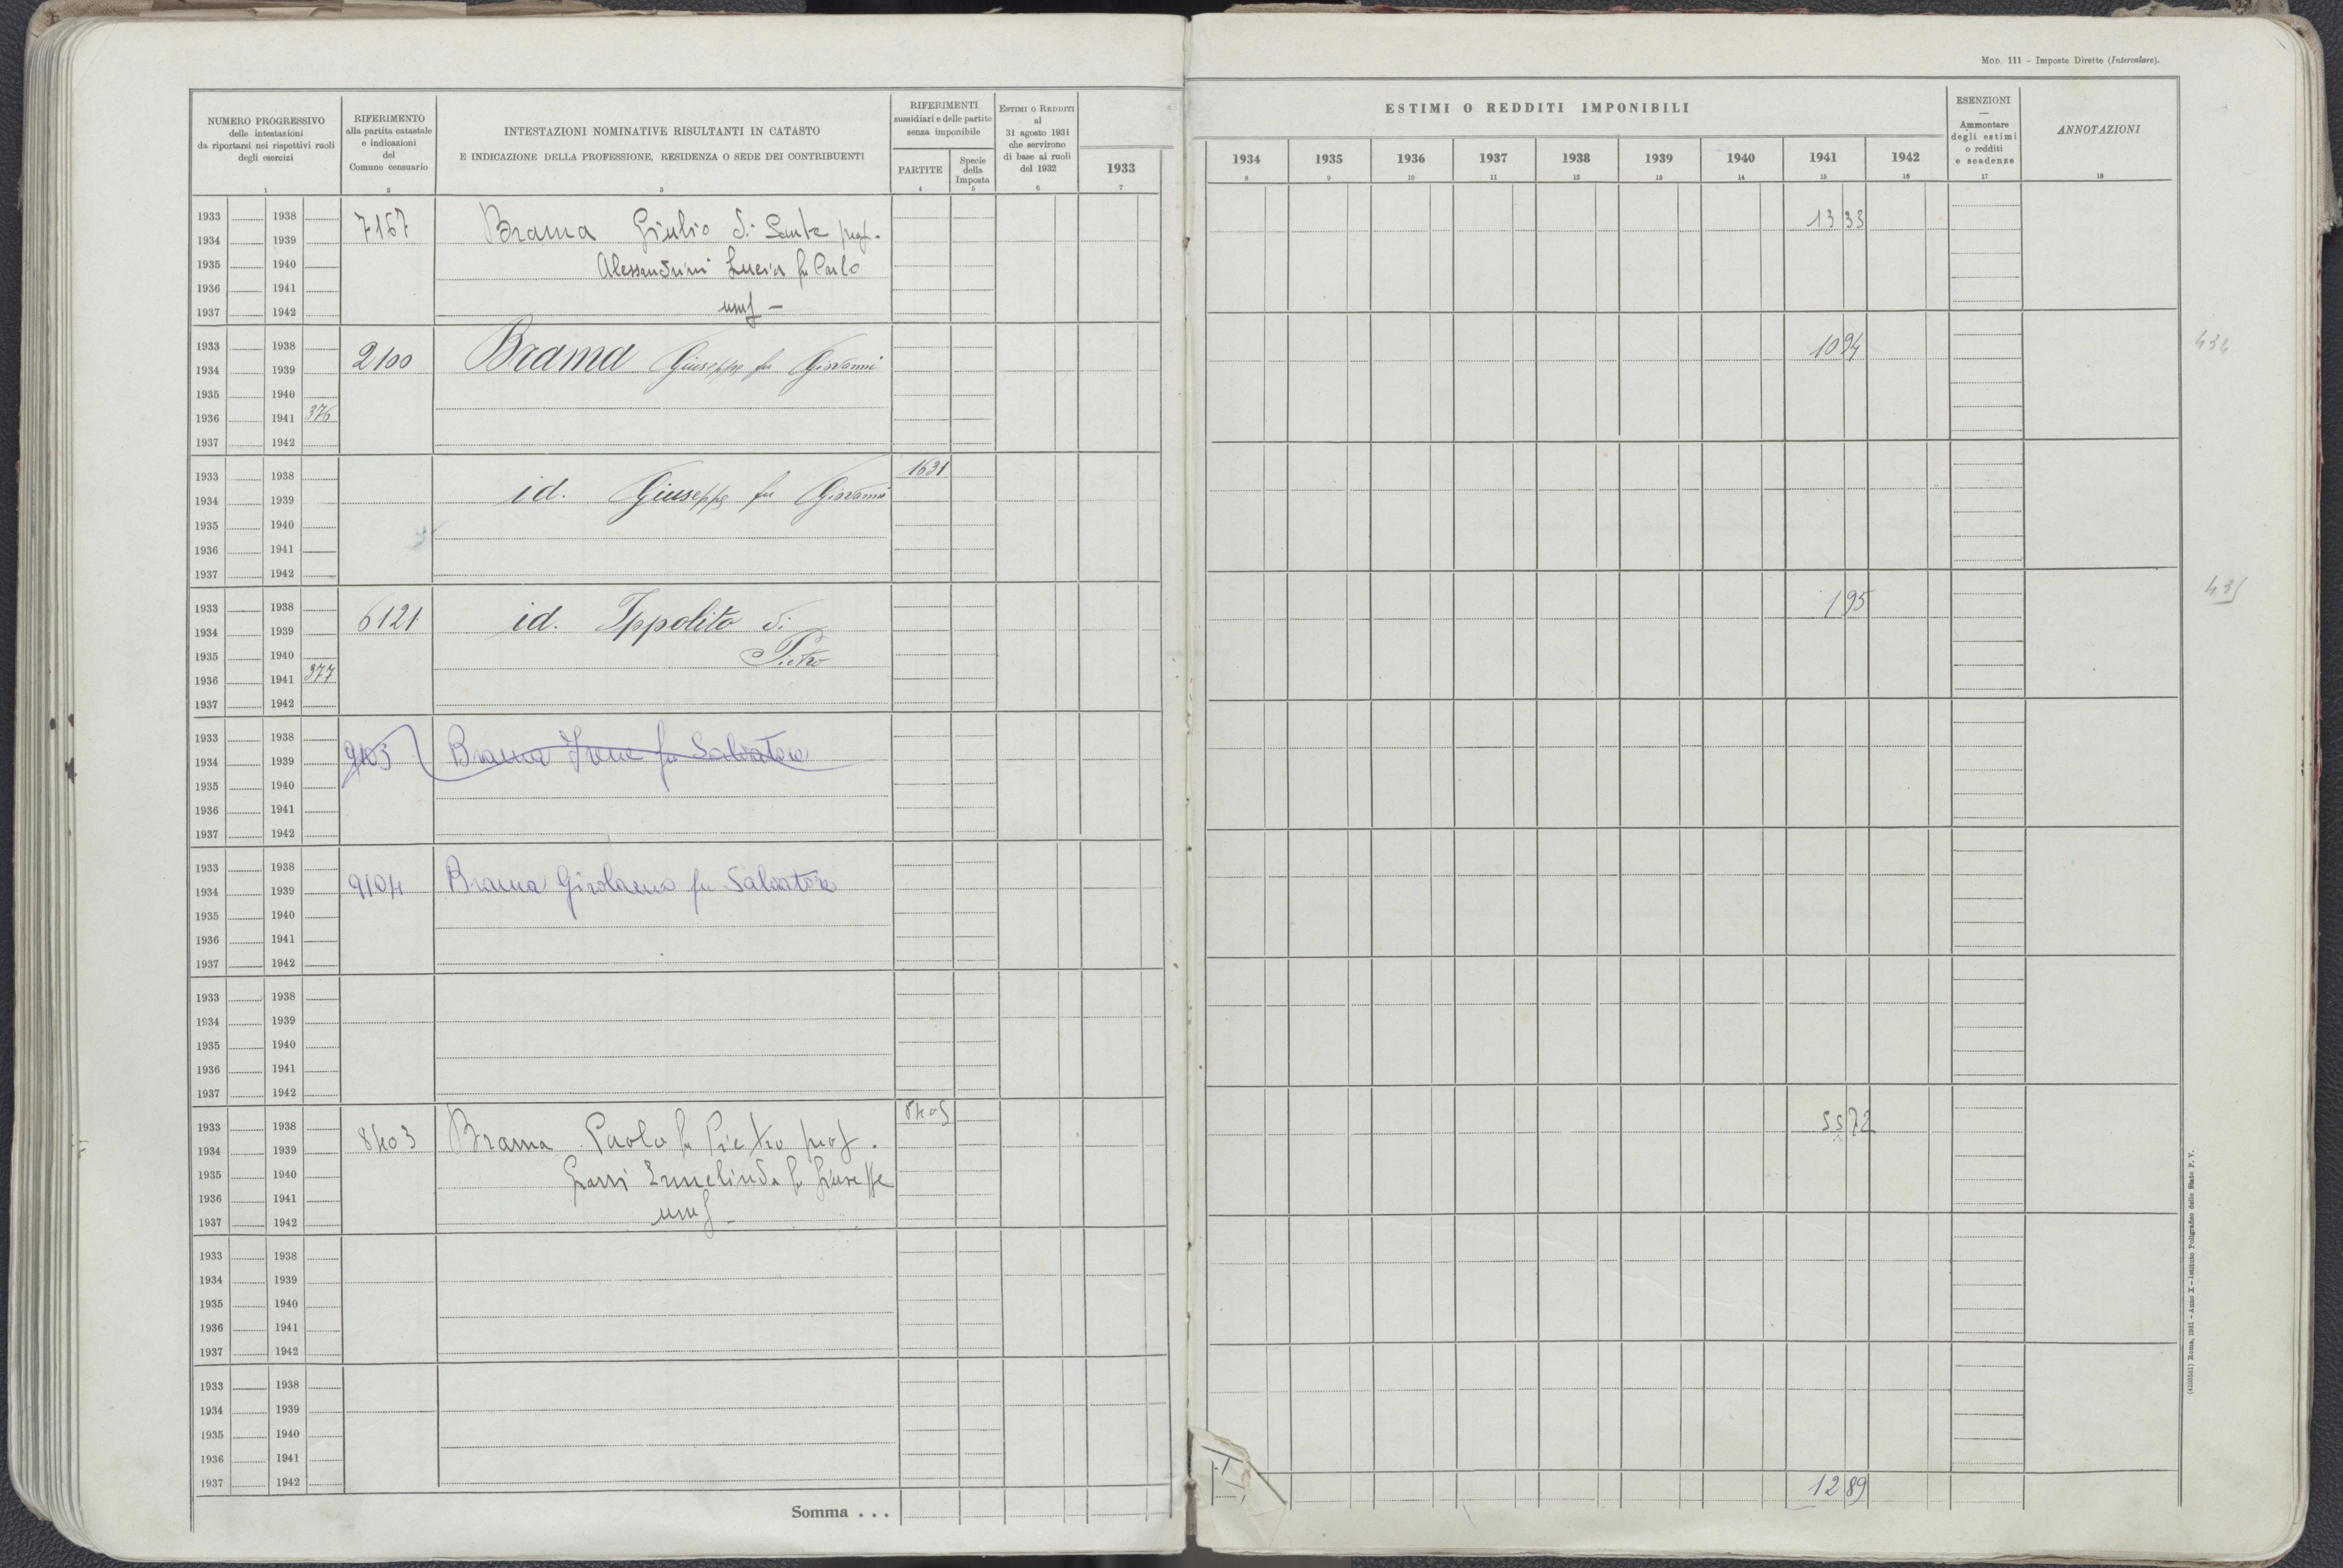 MOD. 111 – Imposte Dirette (Intercalare).
NUMERO PROGRESSIVO
delle intestazioni
da riportarsi nei rispettivi ruoli
degli esercizi
1
RIFERIMENTO
alla partita catastale
e indicazioni
del
Comune censuario
2
INTESTAZIONI NOMINATIVE RISULTANTI IN CATASTO
E INDICAZIONE DELLA PROFESSIONE, RESIDENZA O SEDE DEI CONTRIBUENTI
3
RIFERIMENTI
sussidiari e delle partite
senza imponibile
PARTITE
4
Specie
della
Imposta
5
ESTIMI O REDDITI
al
31 agosto 1931
che servirono
di base ai ruoli
del 1932
6
1933
7
ESTIMI O REDDITI IMPONIBILI
1934 1935 1936 1937 1938 1939 1940 1941 1942
8 9 10 11 12 13 14 15 16
ESENZIONI
—
Ammontare
degli estimi
o redditi
e scadenze
17
ANNOTAZIONI
18
1933 1938 7167 Brama Giulio di Sante 13 33
1934 1939
1935 1940 Alessandrini Lucia fu Carlo
1936 1941
1937 1942
1933 1938 2100 Brama Giuseppe fu Giovanni 10 94 434
1934 1939
1935 1940
1936 1941 376
1937 1942
1933 1938 id. Giuseppe fu Giovanni 1631
1934 1939
1935 1940
1936 1941
1937 1942
1933 1938 6121 id. Ippolito di 1 95 435
1934 1939
1935 1940 Pietro
1936 1941 377
1937 1942
1933 1938
1934 1939 9103 Brama Irene fu Salvatore
1935 1940
1936 1941
1937 1942
1933 1938
1934 1939 9104 Brama Girolamo fu Salvatore
1935 1940
1936 1941
1937 1942
1933 1938
1934 1939
1935 1940
1936 1941
1937 1942
1933 1938 8403 Brama Paolo fu Pietro 8405 55 72
1934 1939
1935 1940 Ermelinda fu Giuseppe
1936 1941
1937 1942
1933 1938
1934 1939
1935 1940
1936 1941
1937 1942
1933 1938
1934 1939
1935 1940
1936 1941
1937 1942
Somma . . . 12 89
(4103551) Roma, 1931 – Anno X – Istituto Poligrafico dello Stato P. V.